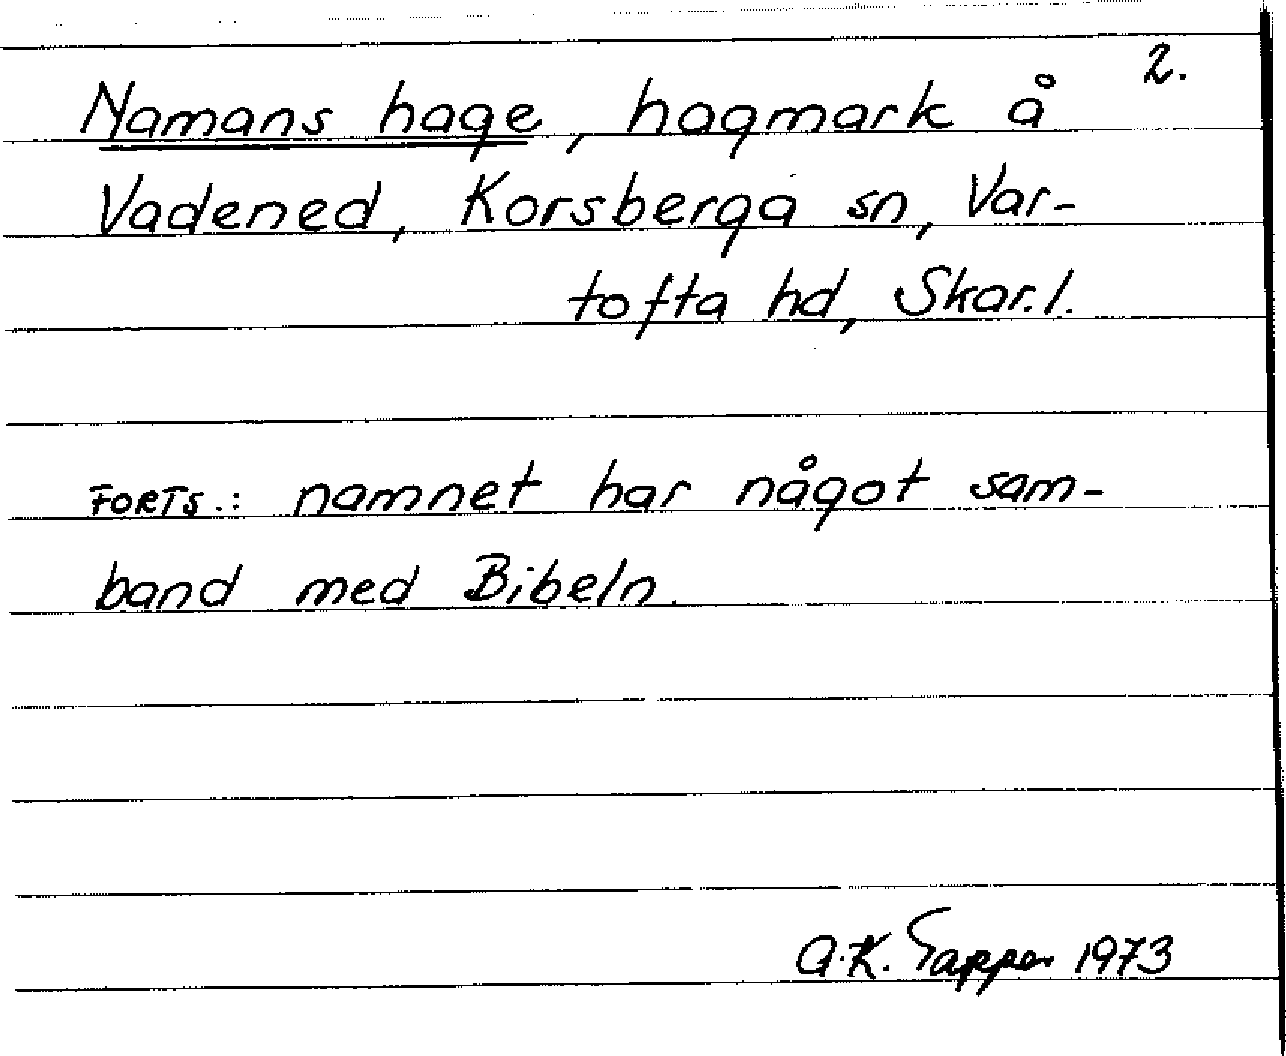 2.
Namans hage, hagmark å
Vadened, Korsberga sn, Var-
tofta hd, Skar.l.
FORTS.: namnet har något sam-
band med Bibeln.
A.K. Tapper 1973